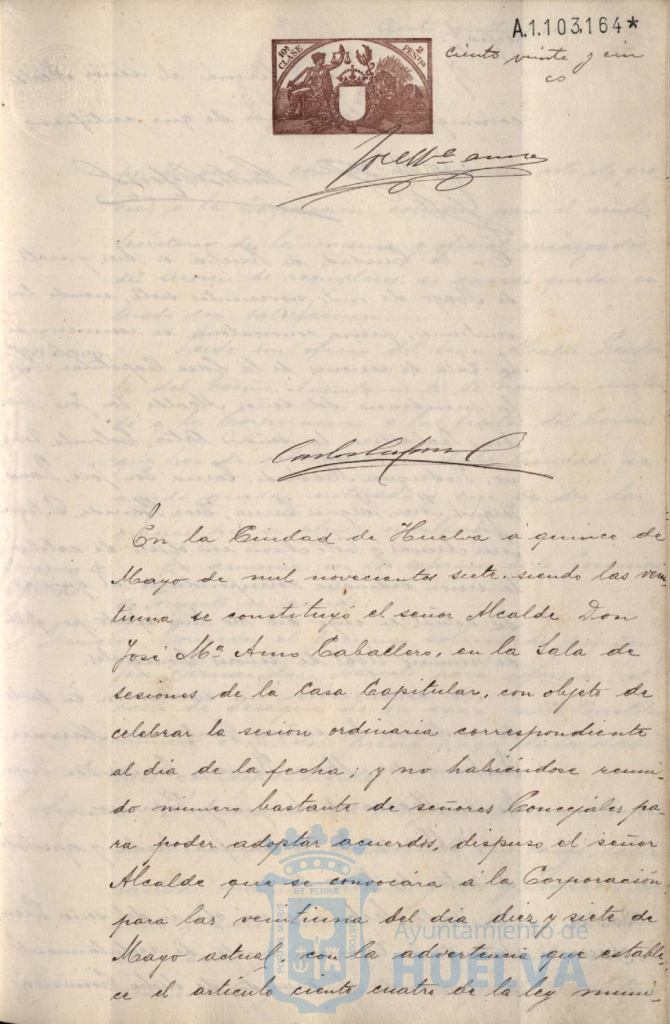 A.1.103.164*
10ª CLASE
2 PESETAS
ciento veinte y cin
co
José Mª Amo
En la Ciudad de Huelva á quince de
Mayo de mil novecientos siete, siendo las vein-
tiuna se constituyó el señor Alcalde Don
José Mª Amo Caballero, en la Sala de
sesiones de la Casa Capitular, con objeto de
celebrar la sesion ordinaria correspondiente
al dia de la fecha; y no habiéndose reuni-
do número bastante de señores Concejales pa-
ra poder adoptar acuerdos, dispuso el señor
Alcalde que se convocára á la Corporación
para las veintiuna del dia diez y siete de
Mayo actual, con la advertencia que estable-
ce el artículo ciento cuatro de la ley muni-
Ayuntamiento de
HUELVA